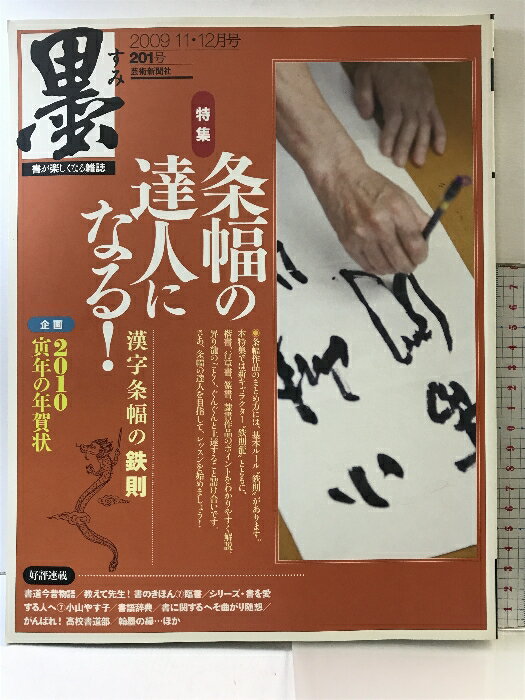 墨
すみ
2009 11・12月号
201号
芸術新聞社
書が楽しくなる雑誌
特集
条幅の
達人に
なる！
漢字条幅の鉄則
◉条幅作品のまとめ方には、基本ルール「鉄則」があります。
本特集では新キャラクター「鉄則龍」とともに、
楷書、行草書、篆書、隷書作品のポイントをわかりやすく解説。
昇り龍のごとく、ぐんぐんと上達すること請け合いです。
さあ、条幅の達人を目指して、レッスンを始めましょう！
企画
2010
寅年の年賀状
好評連載
書道今昔物語／教えて先生！ 書のきほん⑦臨書／シリーズ・書を愛
する人へ⑦小山やす子／書語辞典／書に関するへそ曲がり随想／
がんばれ！ 高校書道部／翰墨の縁…ほか